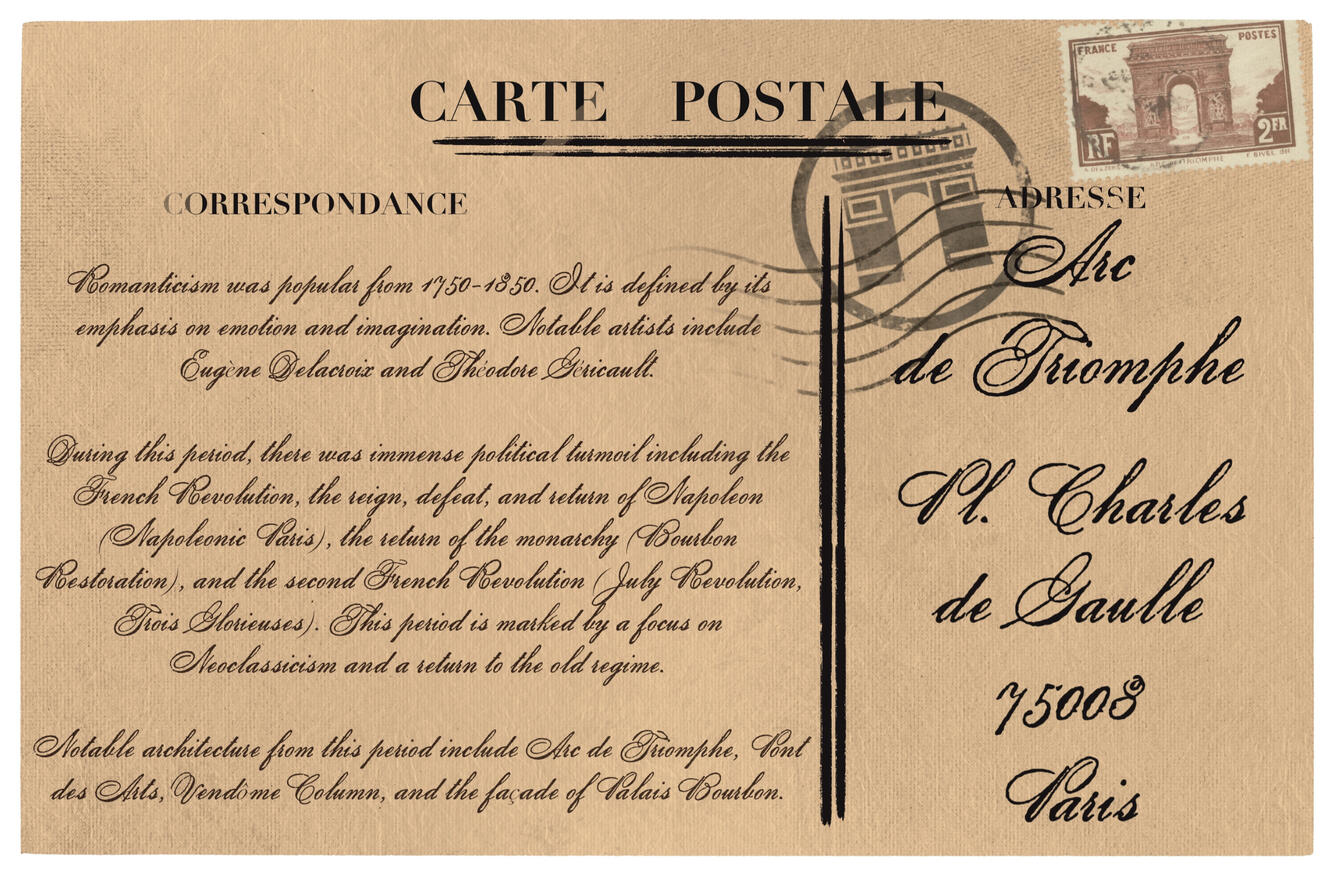 CARTE POSTALE
FRANCE POSTES
RF
2FR
CORRESPONDANCE
Romanticism was popular from 1750-1850. It is defined by its
emphasis on emotion and imagination. Notable artists include
Eugène Delacroix and Théodore Géricault.
During this period, there was immense political turmoil including the
French Revolution, the reign, defeat, and return of Napoleon
(Napoleonic Paris), the return of the monarchy (Bourbon
Restoration), and the second French Revolution (July Revolution,
Trois Glorieuses). This period is marked by a focus on
Neoclassicism and a return to the old regime.
Notable architecture from this period include Arc de Triomphe, Pont
des Arts, Vendôme Column, and the façade of Palais Bourbon.
ADRESSE
Arc
de Triomphe
Pl. Charles
de Gaulle
75008
Paris